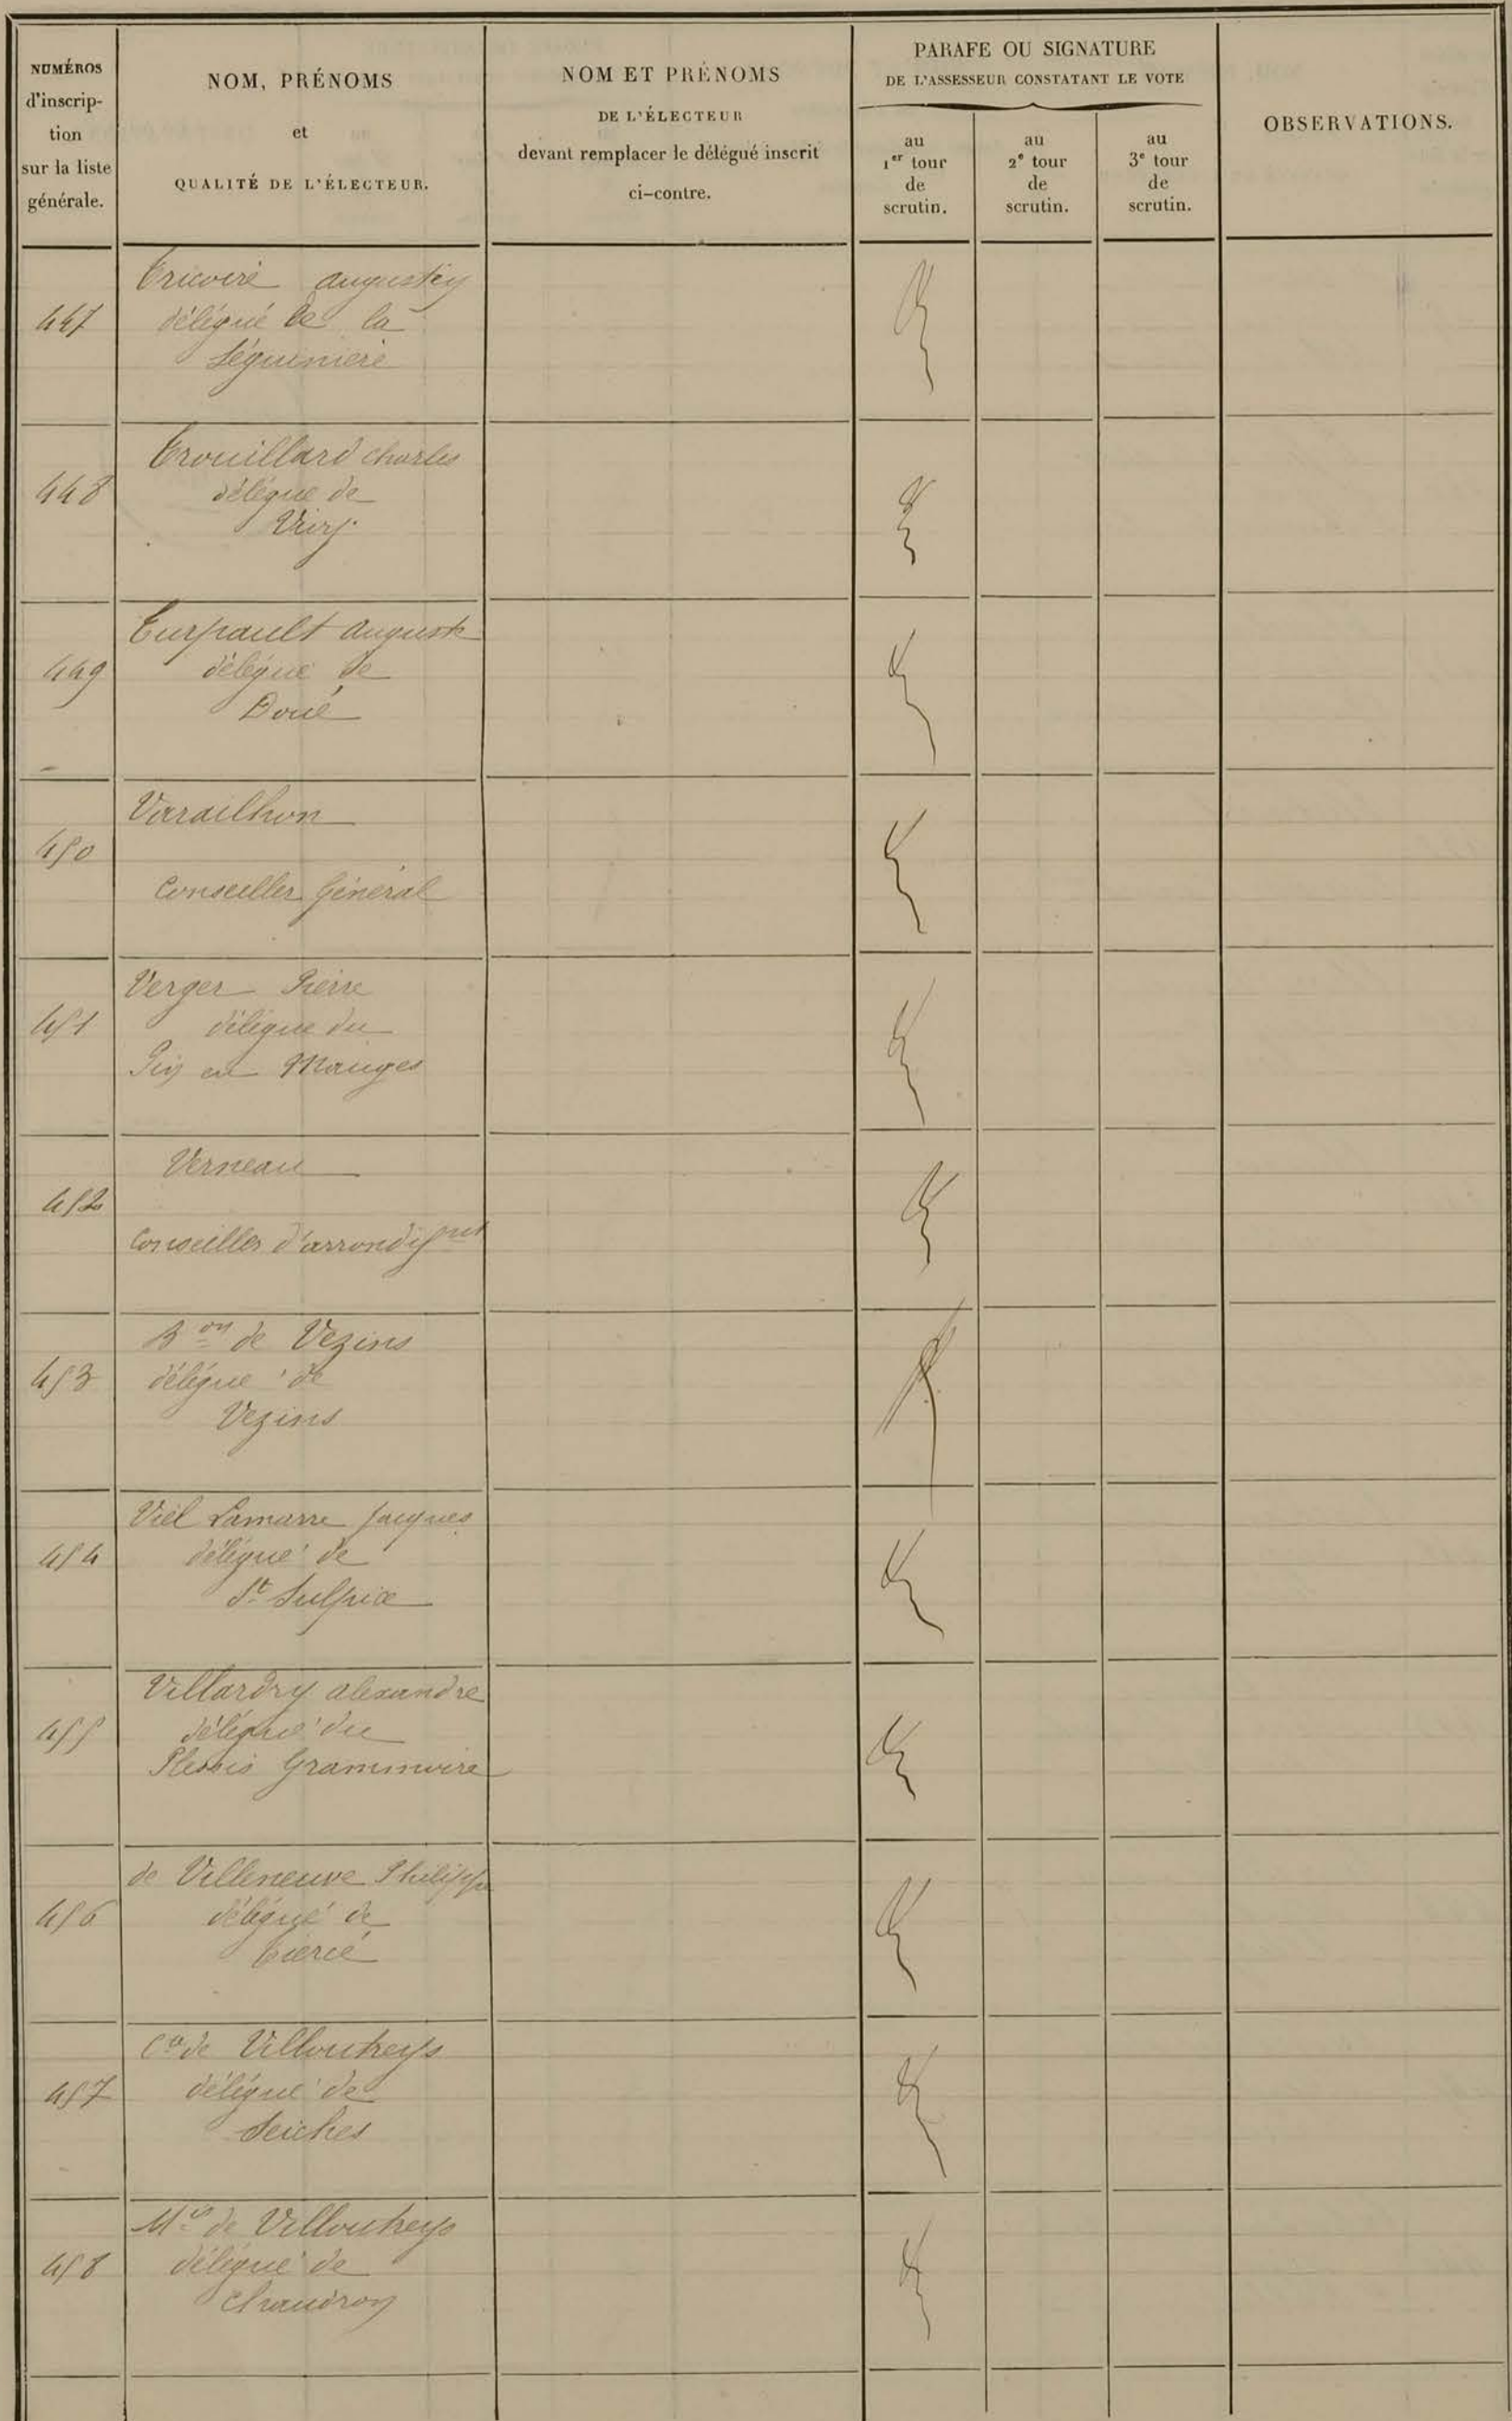 NUMÉROS
d'inscrip-
tion
sur la liste
générale.
NOM, PRÉNOMS
et
QUALITÉ DE L'ÉLECTEUR.
NOM ET PRÉNOMS
DE L'ÉLECTEUR
devant remplacer le délégué inscrit
ci-contre.
PARAFE OU SIGNATURE
DE L'ASSESSEUR CONSTATANT LE VOTE
au
1er tour
de
scrutin.
au
2e tour
de
scrutin.
au
3e tour
de
scrutin.
OBSERVATIONS.
447
Tricoire augustin
délégué de la
Séguinière
448
Trouillard charles
délégué de
449
Turpault auguste
délégué de
Doué
450
Varailhon
Conseiller Général
451
Verger Pierre
délégué du
Pin en Mauges
452
Verneau
Conseiller d'arrondisst
453
Bon de Vezins
délégué de
Vezins
454
Viel Lamarre Jacques
délégué de
St Sulpice
455
Villardry alexandre
délégué du
Plessis Grammoire
456
de Villeneuve Philippe
délégué de
Tiercé
457
Cte de Villoutreys
délégué de
Seiches
458
Mis de Villoutreys
délégué de
Chaudron